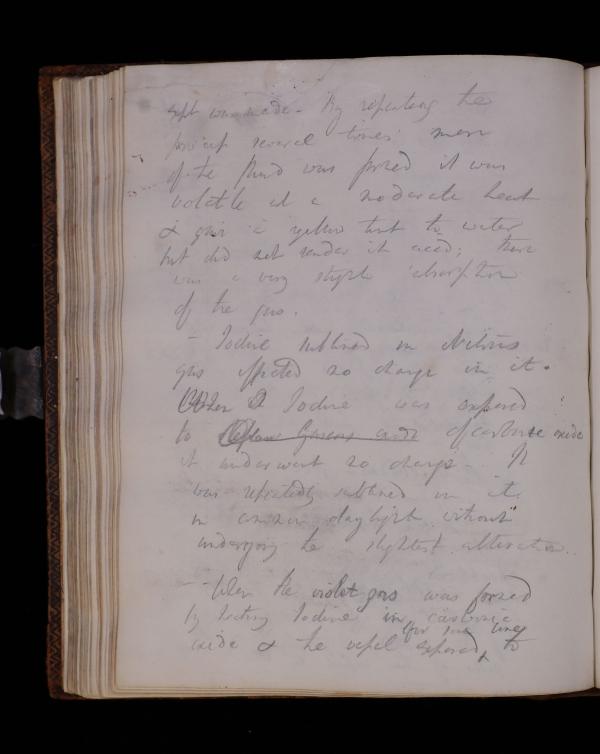 was made. By repeating the
process several times more
of the fluid was formed it was
volatile at a moderate heat
& gave a yellow tint to water
but did not render it acid; there
was a very slight absorption
of the gas.
- Iodine sublimed in Nitrous
gas effected no change in it.
When Iodine was exposed
to Gaseous oxide of carbonic oxide
it underwent no change. It
was repeatedly sublimed in it
in common daylight without
undergoing the slightest alteration.
- When the violet gas was formed
by heating Iodine in carbonic
for some time
oxide & the vessel exposed to